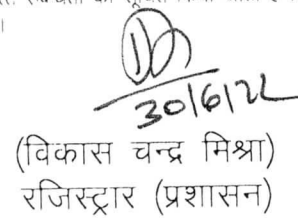 ।
30/6/22
(विकास चन्द्र मिश्रा)
रजिस्ट्रार (प्रशासन)